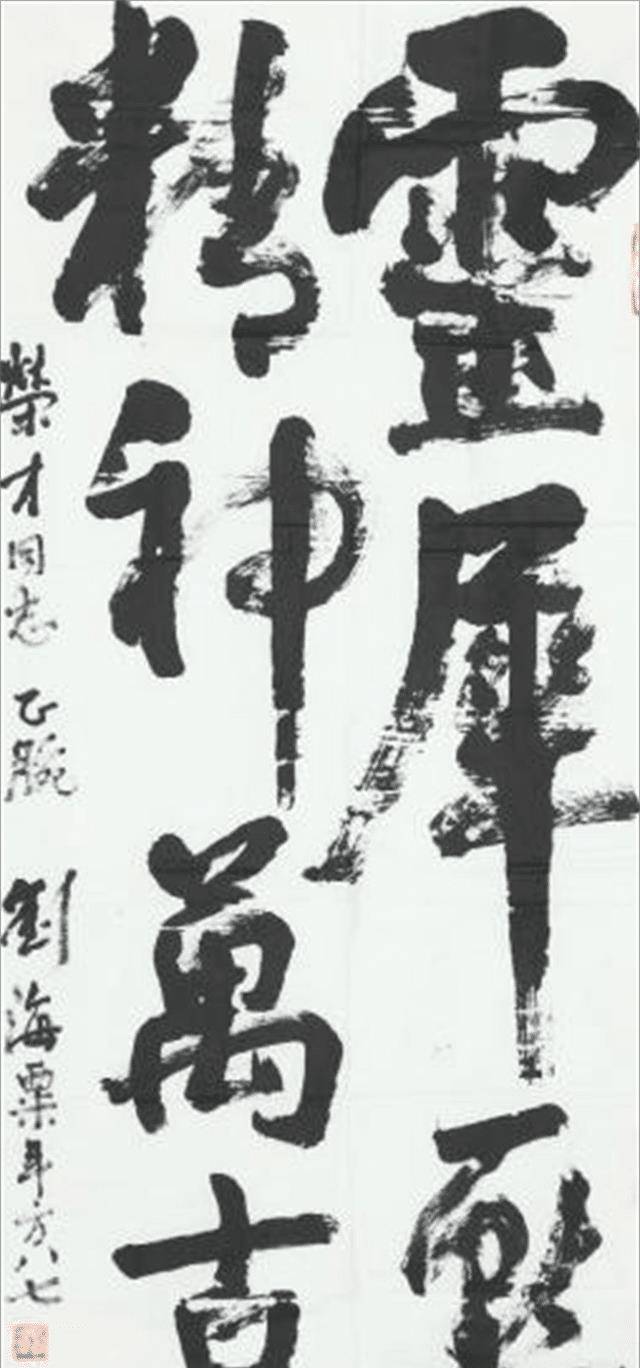 靈犀
精神萬古
榮才同志 正腕 劉海粟年方八七